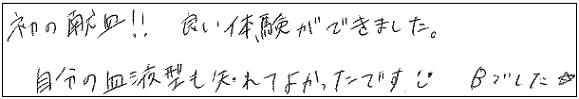 初の献血!! 良い体験ができました。
自分の血液型も知れてよかったです Bでした☆